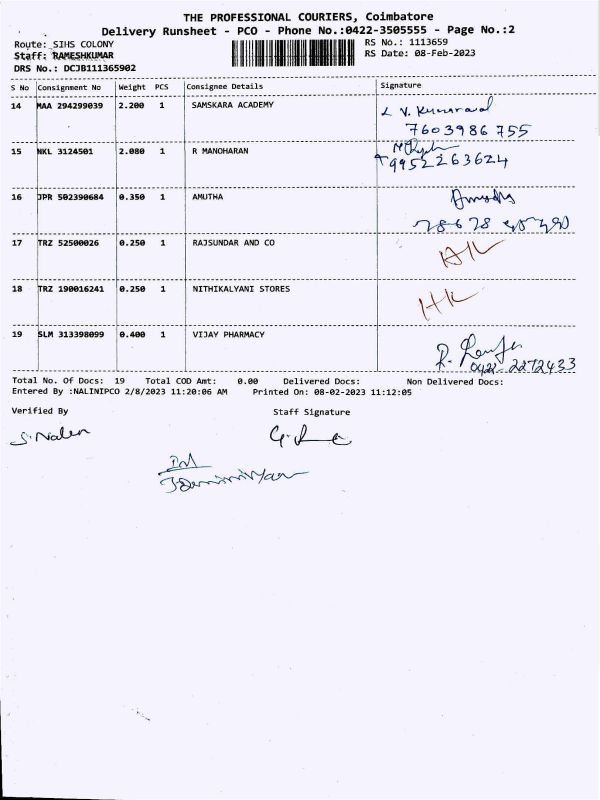 THE PROFESSIONAL COURIERS, Coimbatore
Delivery Runsheet - PCO - Phone No.:0422-3505555 - Page No.:2
Route: SIHS COLONY
RS No.: 1113659
Staff: RAMESHKUMAR
RS Date: 08-Feb-2023
DRS No.: DCJB111365902
S No Consignment No Weight PCS Consignee Details Signature
14 MAA 294299039 2.200 1 SAMSKARA ACADEMY
7603986755
15 NKL 3124501 2.080 1 R MANOHARAN
9952263624
16 JPR 502390684 0.350 1 AMUTHA
17 TRZ 52500026 0.250 1 RAJSUNDAR AND CO
18 TRZ 190016241 0.250 1 NITHIKALYANI STORES
19 SLM 313398099 0.400 1 VIJAY PHARMACY
0422-2272433
Total No. Of Docs: 19 Total COD Amt: 0.00 Delivered Docs: Non Delivered Docs:
Entered By :NALINIPCO 2/8/2023 11:20:06 AM Printed On: 08-02-2023 11:12:05
Verified By Staff Signature